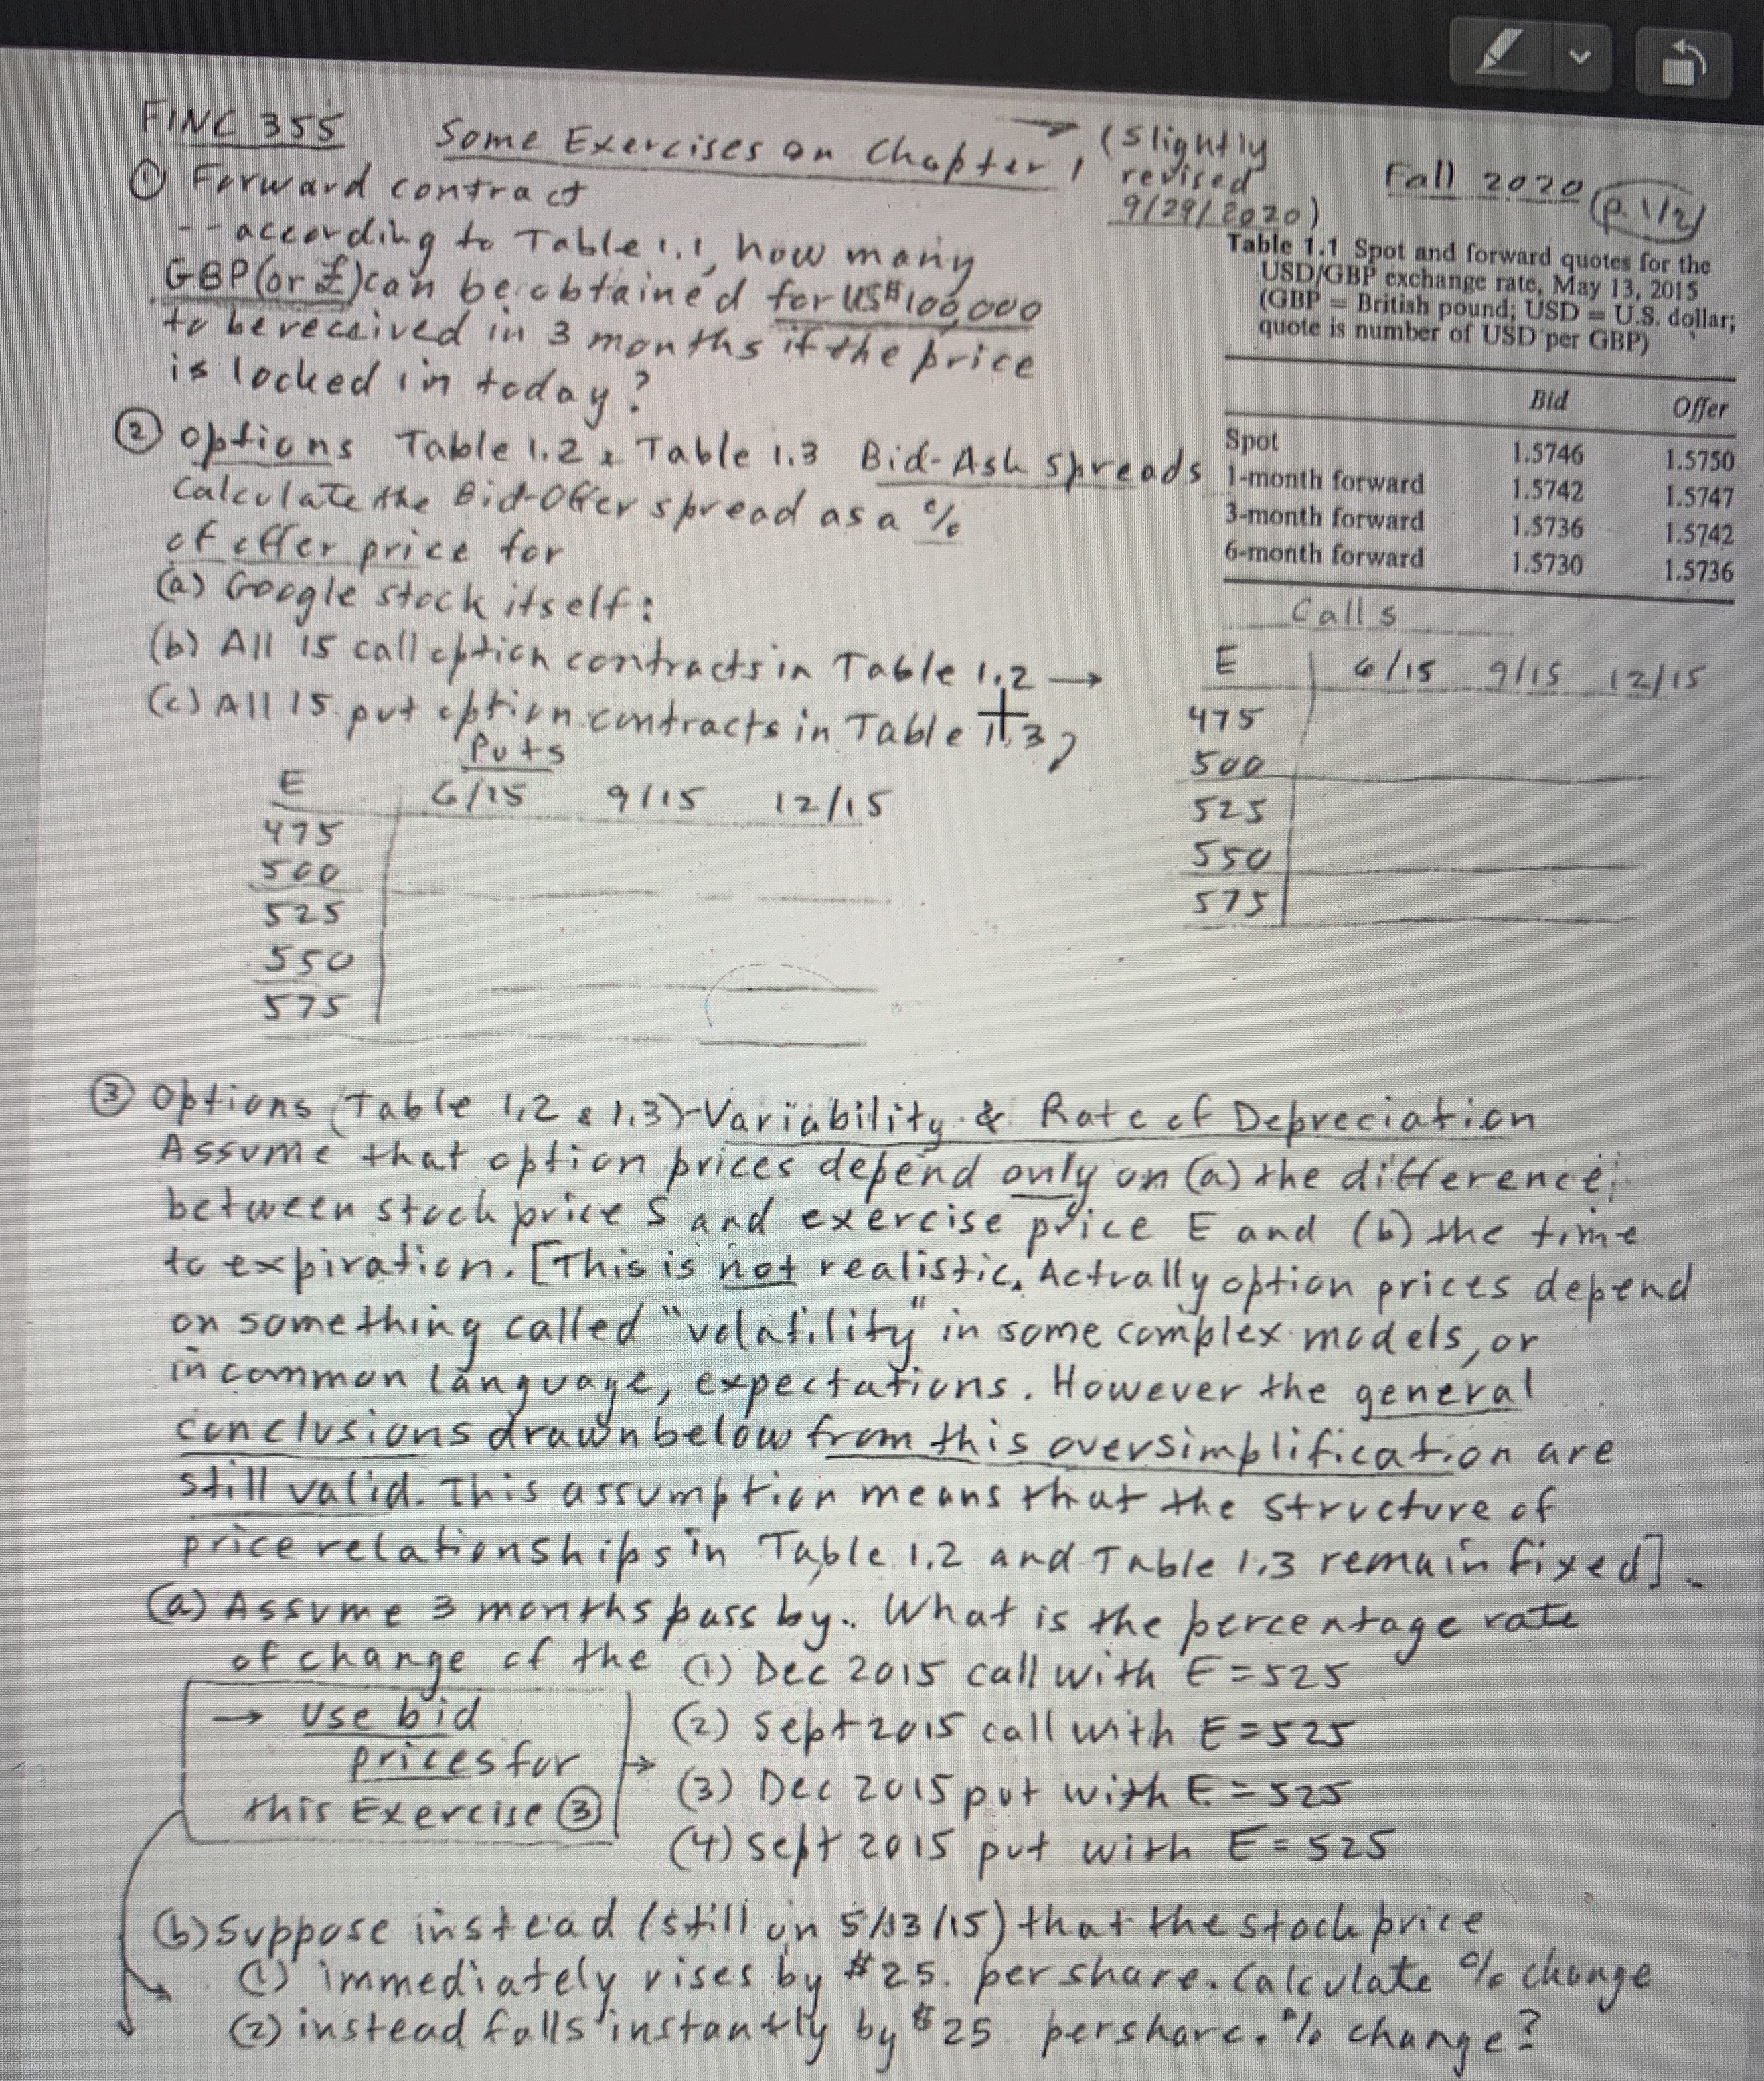 FINC 355 Some Exercises on Chapter 1 → (slightly revised 9/29/2020) Fall 2020 (p. 1/2)
① Forward contract
-- according to Table 1.1, how many
GBP (or £) can be obtained for US$100,000
to be received in 3 months if the price
is locked in today?
Table 1.1 Spot and forward quotes for the
USD/GBP exchange rate, May 13, 2015
(GBP = British pound; USD = U.S. dollar;
quote is number of USD per GBP)
Bid Offer
Spot 1.5746 1.5750
1-month forward 1.5742 1.5747
3-month forward 1.5736 1.5742
6-month forward 1.5730 1.5736
② Options Table 1.2 & Table 1.3 Bid-Ask Spreads
Calculate the Bid-Offer spread as a %
of offer price for
(a) Google stock itself:
(b) All 15 call option contracts in Table 1.2 →
(c) All 15 put option contracts in Table 1.3
Calls
E 6/15 9/15 12/15
475
500
525
550
575
Puts
E 6/15 9/15 12/15
475
500
525
550
575
③ Options (Table 1.2 & 1.3)-Variability & Rate of Depreciation
Assume that option prices depend only on (a) the difference
between stock price S and exercise price E and (b) the time
to expiration. [This is not realistic. Actually option prices depend
on something called "volatility" in some complex models, or
in common language, expectations. However the general
conclusions drawn below from this oversimplification are
still valid. This assumption means that the structure of
price relationships in Table 1.2 and Table 1.3 remain fixed].
(a) Assume 3 months pass by. What is the percentage rate
of change of the (1) Dec 2015 call with E = 525
(2) Sept 2015 call with E = 525
(3) Dec 2015 put with E = 525
(4) Sept 2015 put with E = 525
→ use bid
prices for
this Exercise ③ →
(b) Suppose instead (still on 5/13/15) that the stock price
(1) immediately rises by $25. per share. Calculate % change
(2) instead falls instantly by $25 per share. % change?